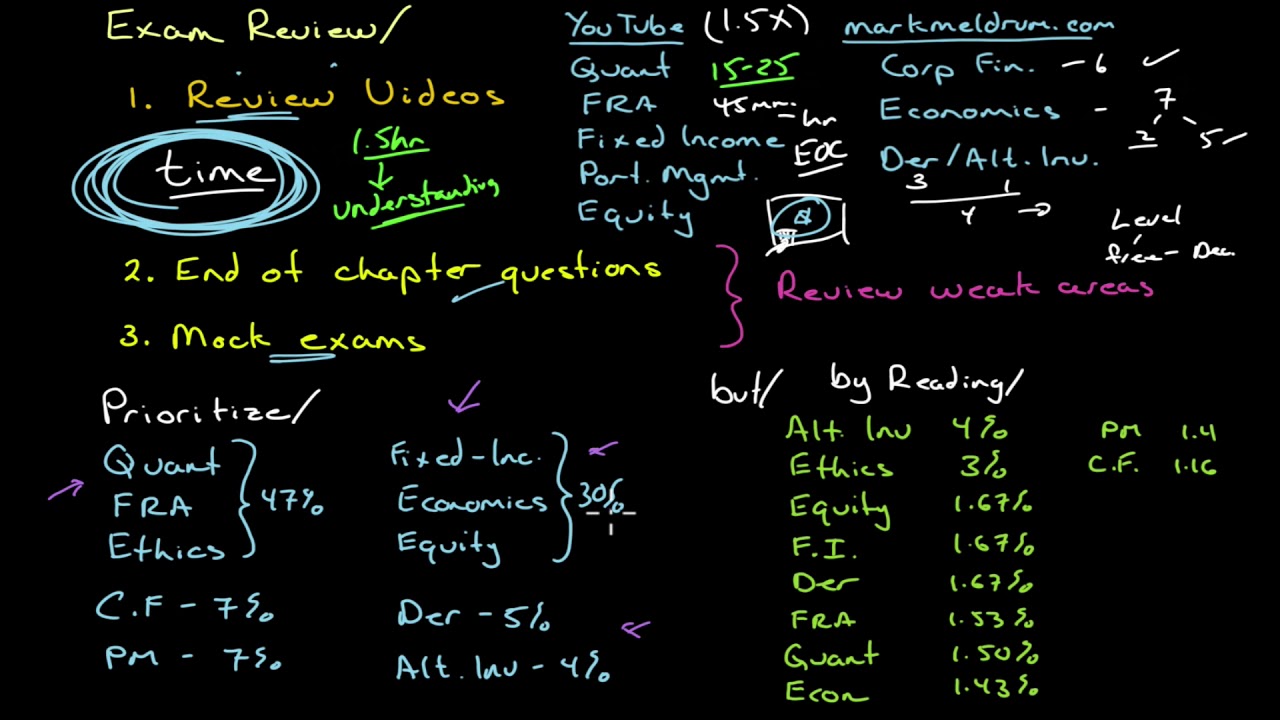 Exam Review/
1. Review Videos
time
1.5hr
understanding
YouTube (1.5X)
Quant 15-25
FRA 45min - hr
Fixed Income
EOC
Port. Mgmt.
Equity
Q
markmeldrum.com
Corp Fin. - 6
Economics - 7
2 5
Der/Alt. Inv.
3 1
4
Level
free - Dec.
2. End of chapter questions
3. Mock exams
Review weak areas
Prioritize/
Quant
FRA 47%
Ethics
C.F - 7%
PM - 7%
Fixed-Inc.
Economics 30%
Equity
Der - 5%
Alt. Inv - 4%
but/ by Reading/
Alt. Inv 4%
Ethics 3%
Equity 1.67%
F.I. 1.67%
Der 1.67%
FRA 1.53%
Quant 1.50%
Econ 1.43%
PM 1.4
C.F. 1.16